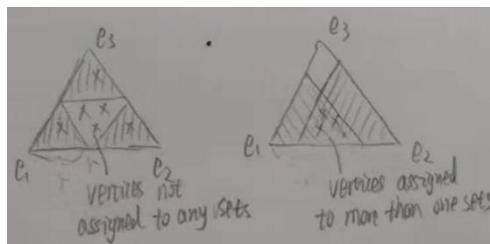 e3
e1
e2
r
vertices not
assigned to any sets
e3
e1
e2
vertices assigned
to more than one sets